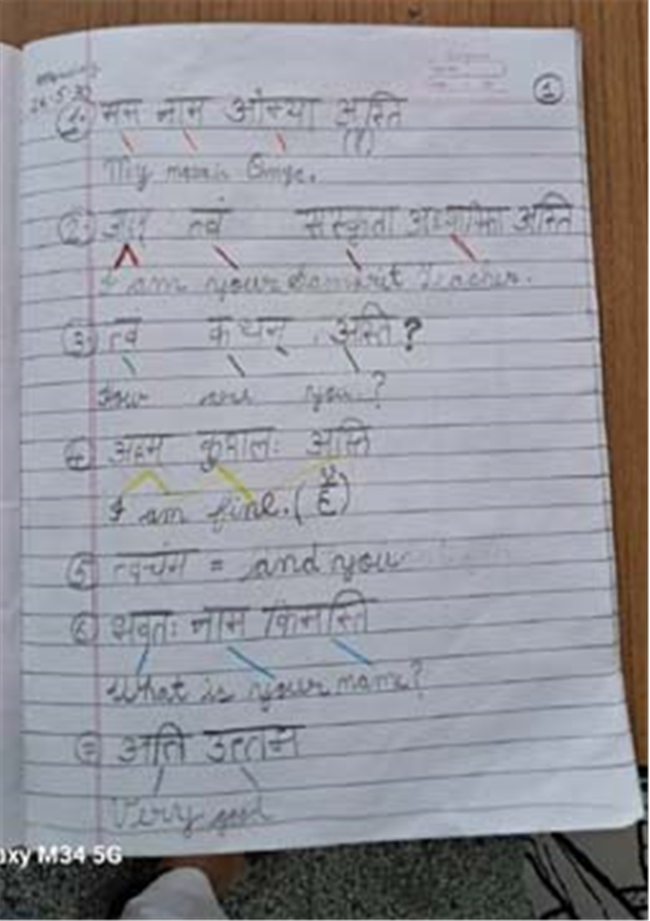 ①
1. मम नाम ओम्या अस्ति
My name is Omya.
2. त्वं संस्कृता अध्यापिका अस्ति
I am your Sanskrit Teacher.
3. त्वं कथन् अस्ति?
How are you?
4. अहम् कुषालः अस्ति
I am fine. (हूँ)
5. त्वचंम = and you
6. भवतः नाम किमस्ति
What is your name?
अति उत्तम
Very good
axy M34 5G